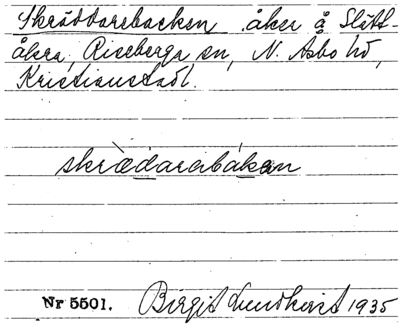 Skräddarebacken åker å Slätt-
åkra, Riseberga sn, N. Åsbo hd,
Kristianstad l.
skrædarabákan
Nr 5501. Birgit Lundkvist 1935